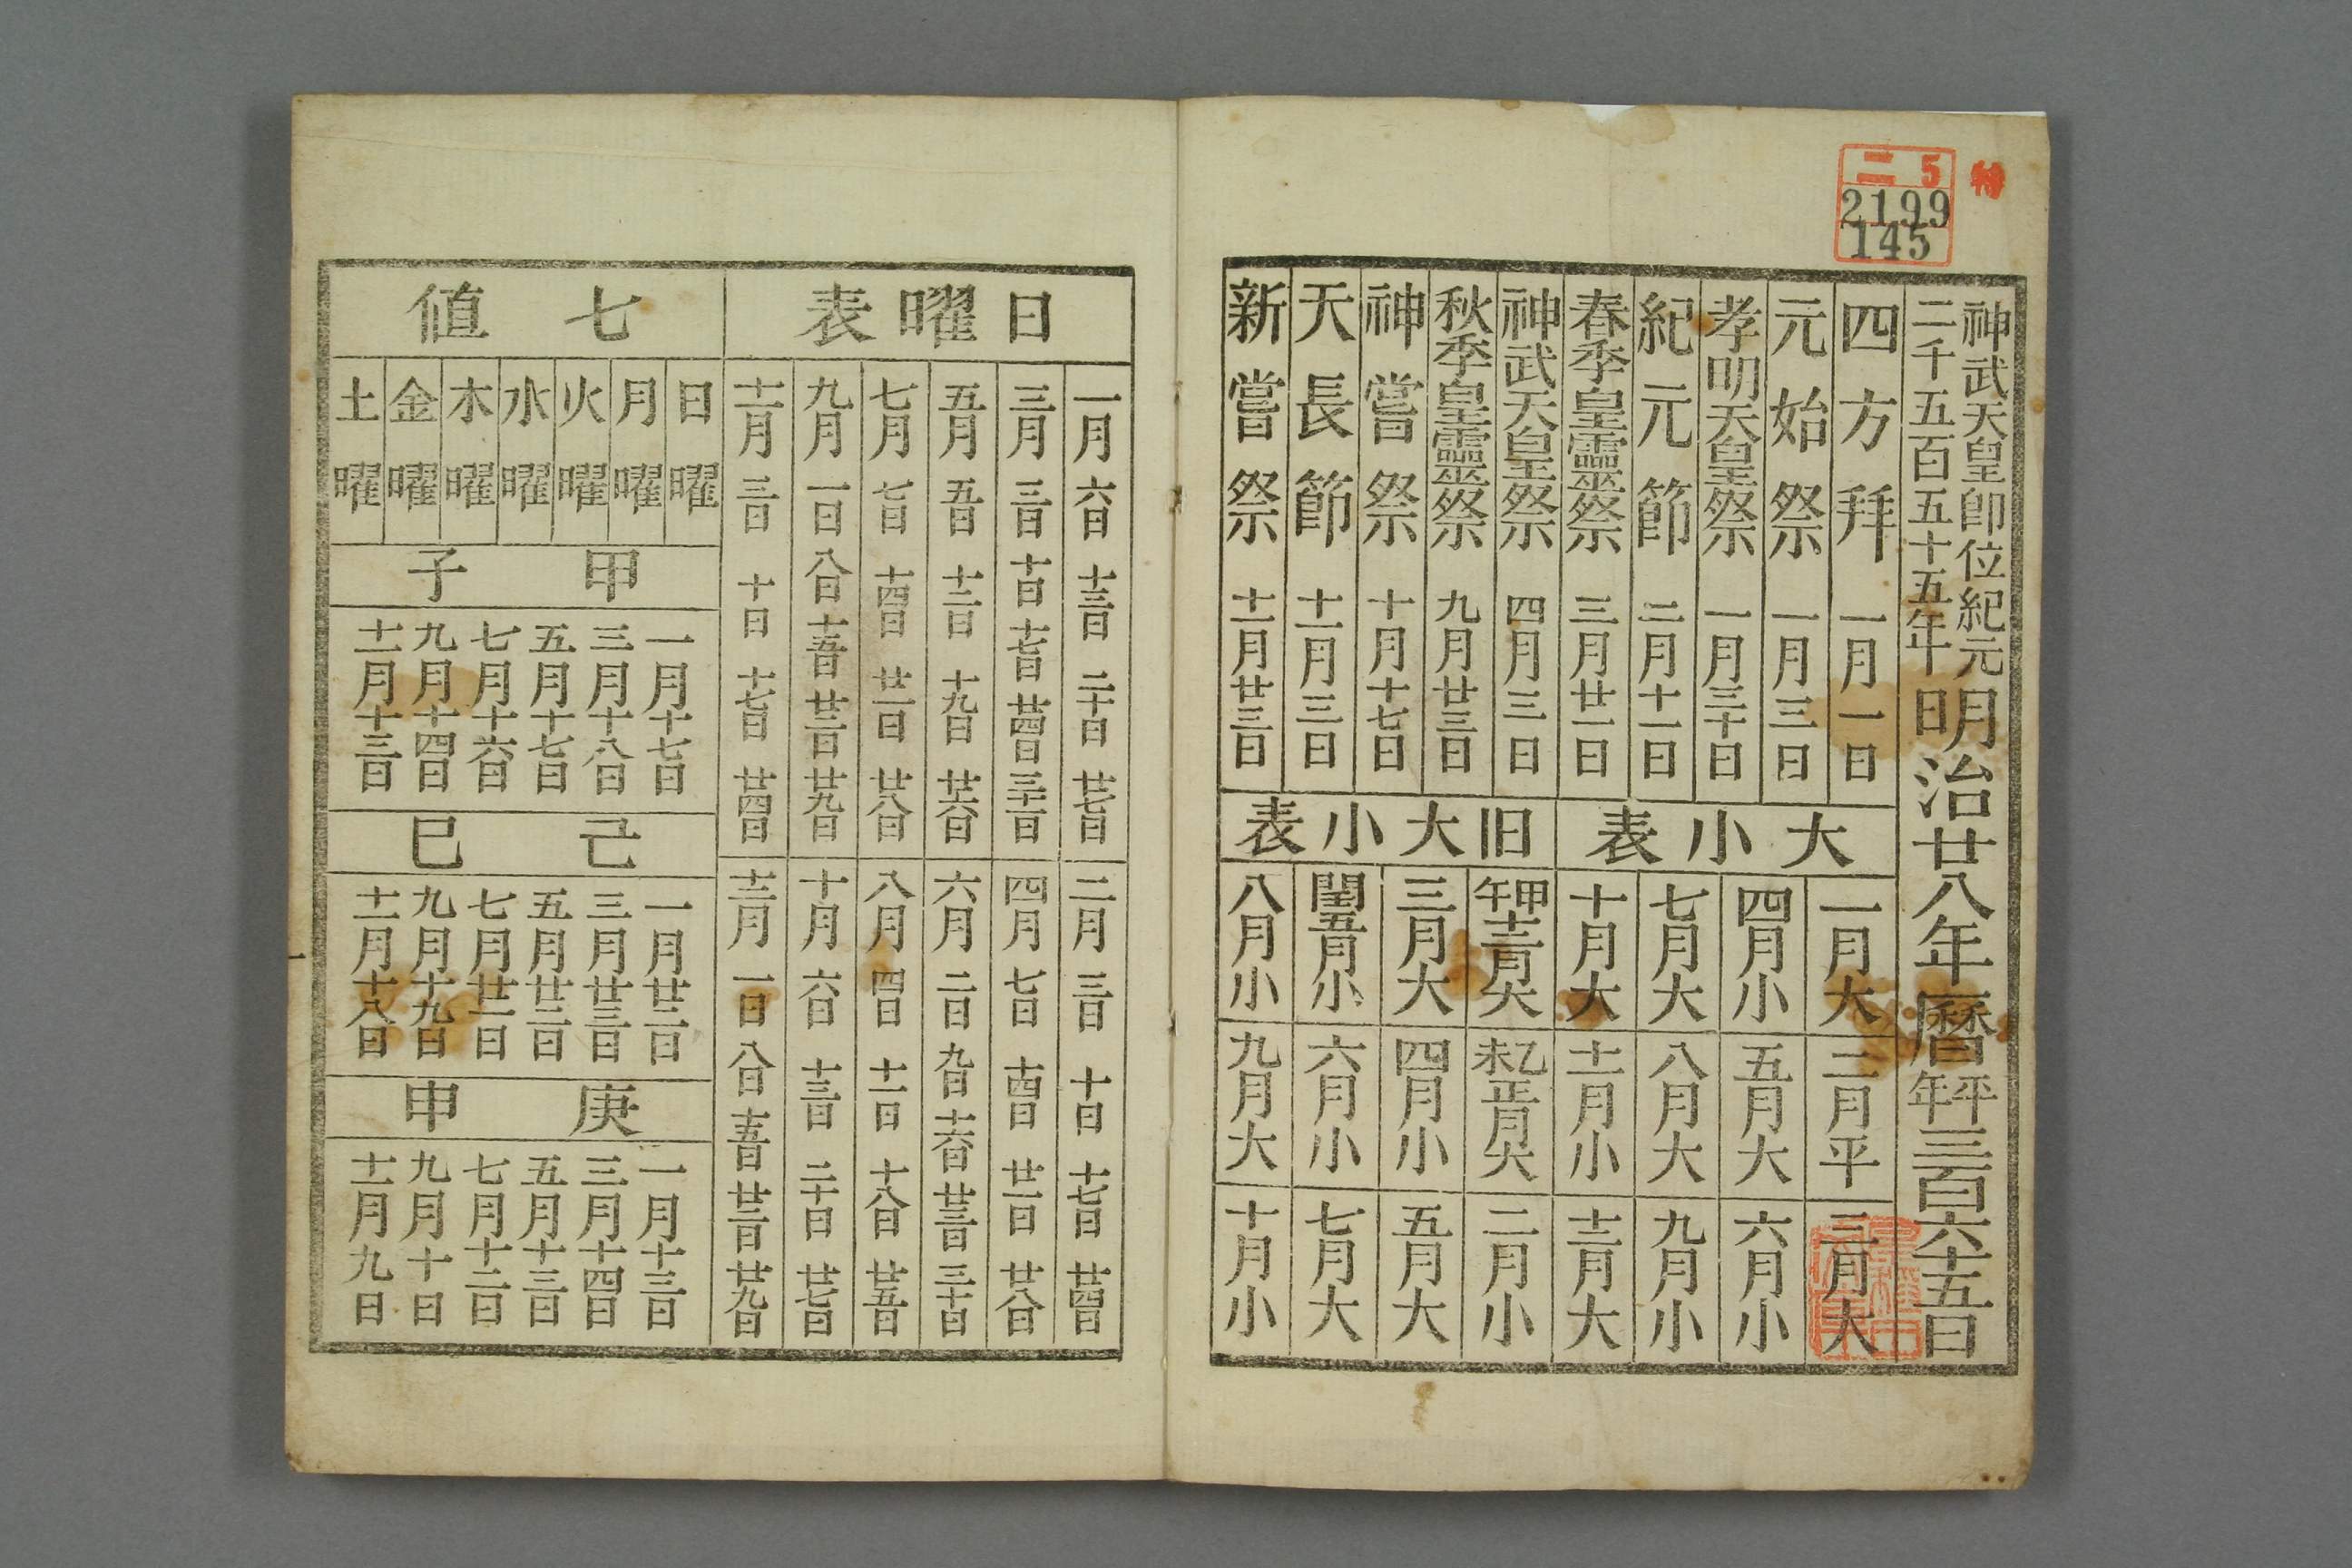 二 5
2199
145
神武天皇即位紀元
二千五百五十五年
明治廿八年暦 平年 三百六十五日
四方拜 一月一日
元始祭 一月三日
孝明天皇祭 一月三十日
紀元節 二月十一日
春季皇靈祭 三月廿一日
神武天皇祭 四月三日
秋季皇靈祭 九月廿三日
神嘗祭 十月十七日
天長節 十一月三日
新嘗祭 十一月廿三日
大小表
一月大 二月平 三月大
四月小 五月大 六月小
七月大 八月大 九月小
十月大 十一月小 十二月大
旧大小表
甲午十二月大 乙未正月大 二月小
三月大 四月小 五月大
閏五月小 六月小 七月大
八月小 九月大 十月小
日曜表
一月 六日 十三日 二十日 廿七日
二月 三日 十日 十七日 廿四日
三月 三日 十日 十七日 廿四日 三十一日
四月 七日 十四日 廿一日 廿八日
五月 五日 十二日 十九日 廿六日
六月 二日 九日 十六日 廿三日 三十日
七月 七日 十四日 廿一日 廿八日
八月 四日 十一日 十八日 廿五日
九月 一日 八日 十五日 廿二日 廿九日
十月 六日 十三日 二十日 廿七日
十一月 三日 十日 十七日 廿四日
十二月 一日 八日 十五日 廿二日 廿九日
七値
日曜
月曜
火曜
水曜
木曜
金曜
土曜
甲子
一月十七日
三月十八日
五月十七日
七月十六日
九月十四日
十一月十三日
己巳
一月廿二日
三月廿三日
五月廿二日
七月廿一日
九月十九日
十一月十八日
庚申
一月十三日
三月十四日
五月十三日
七月十二日
九月十日
十一月九日
一